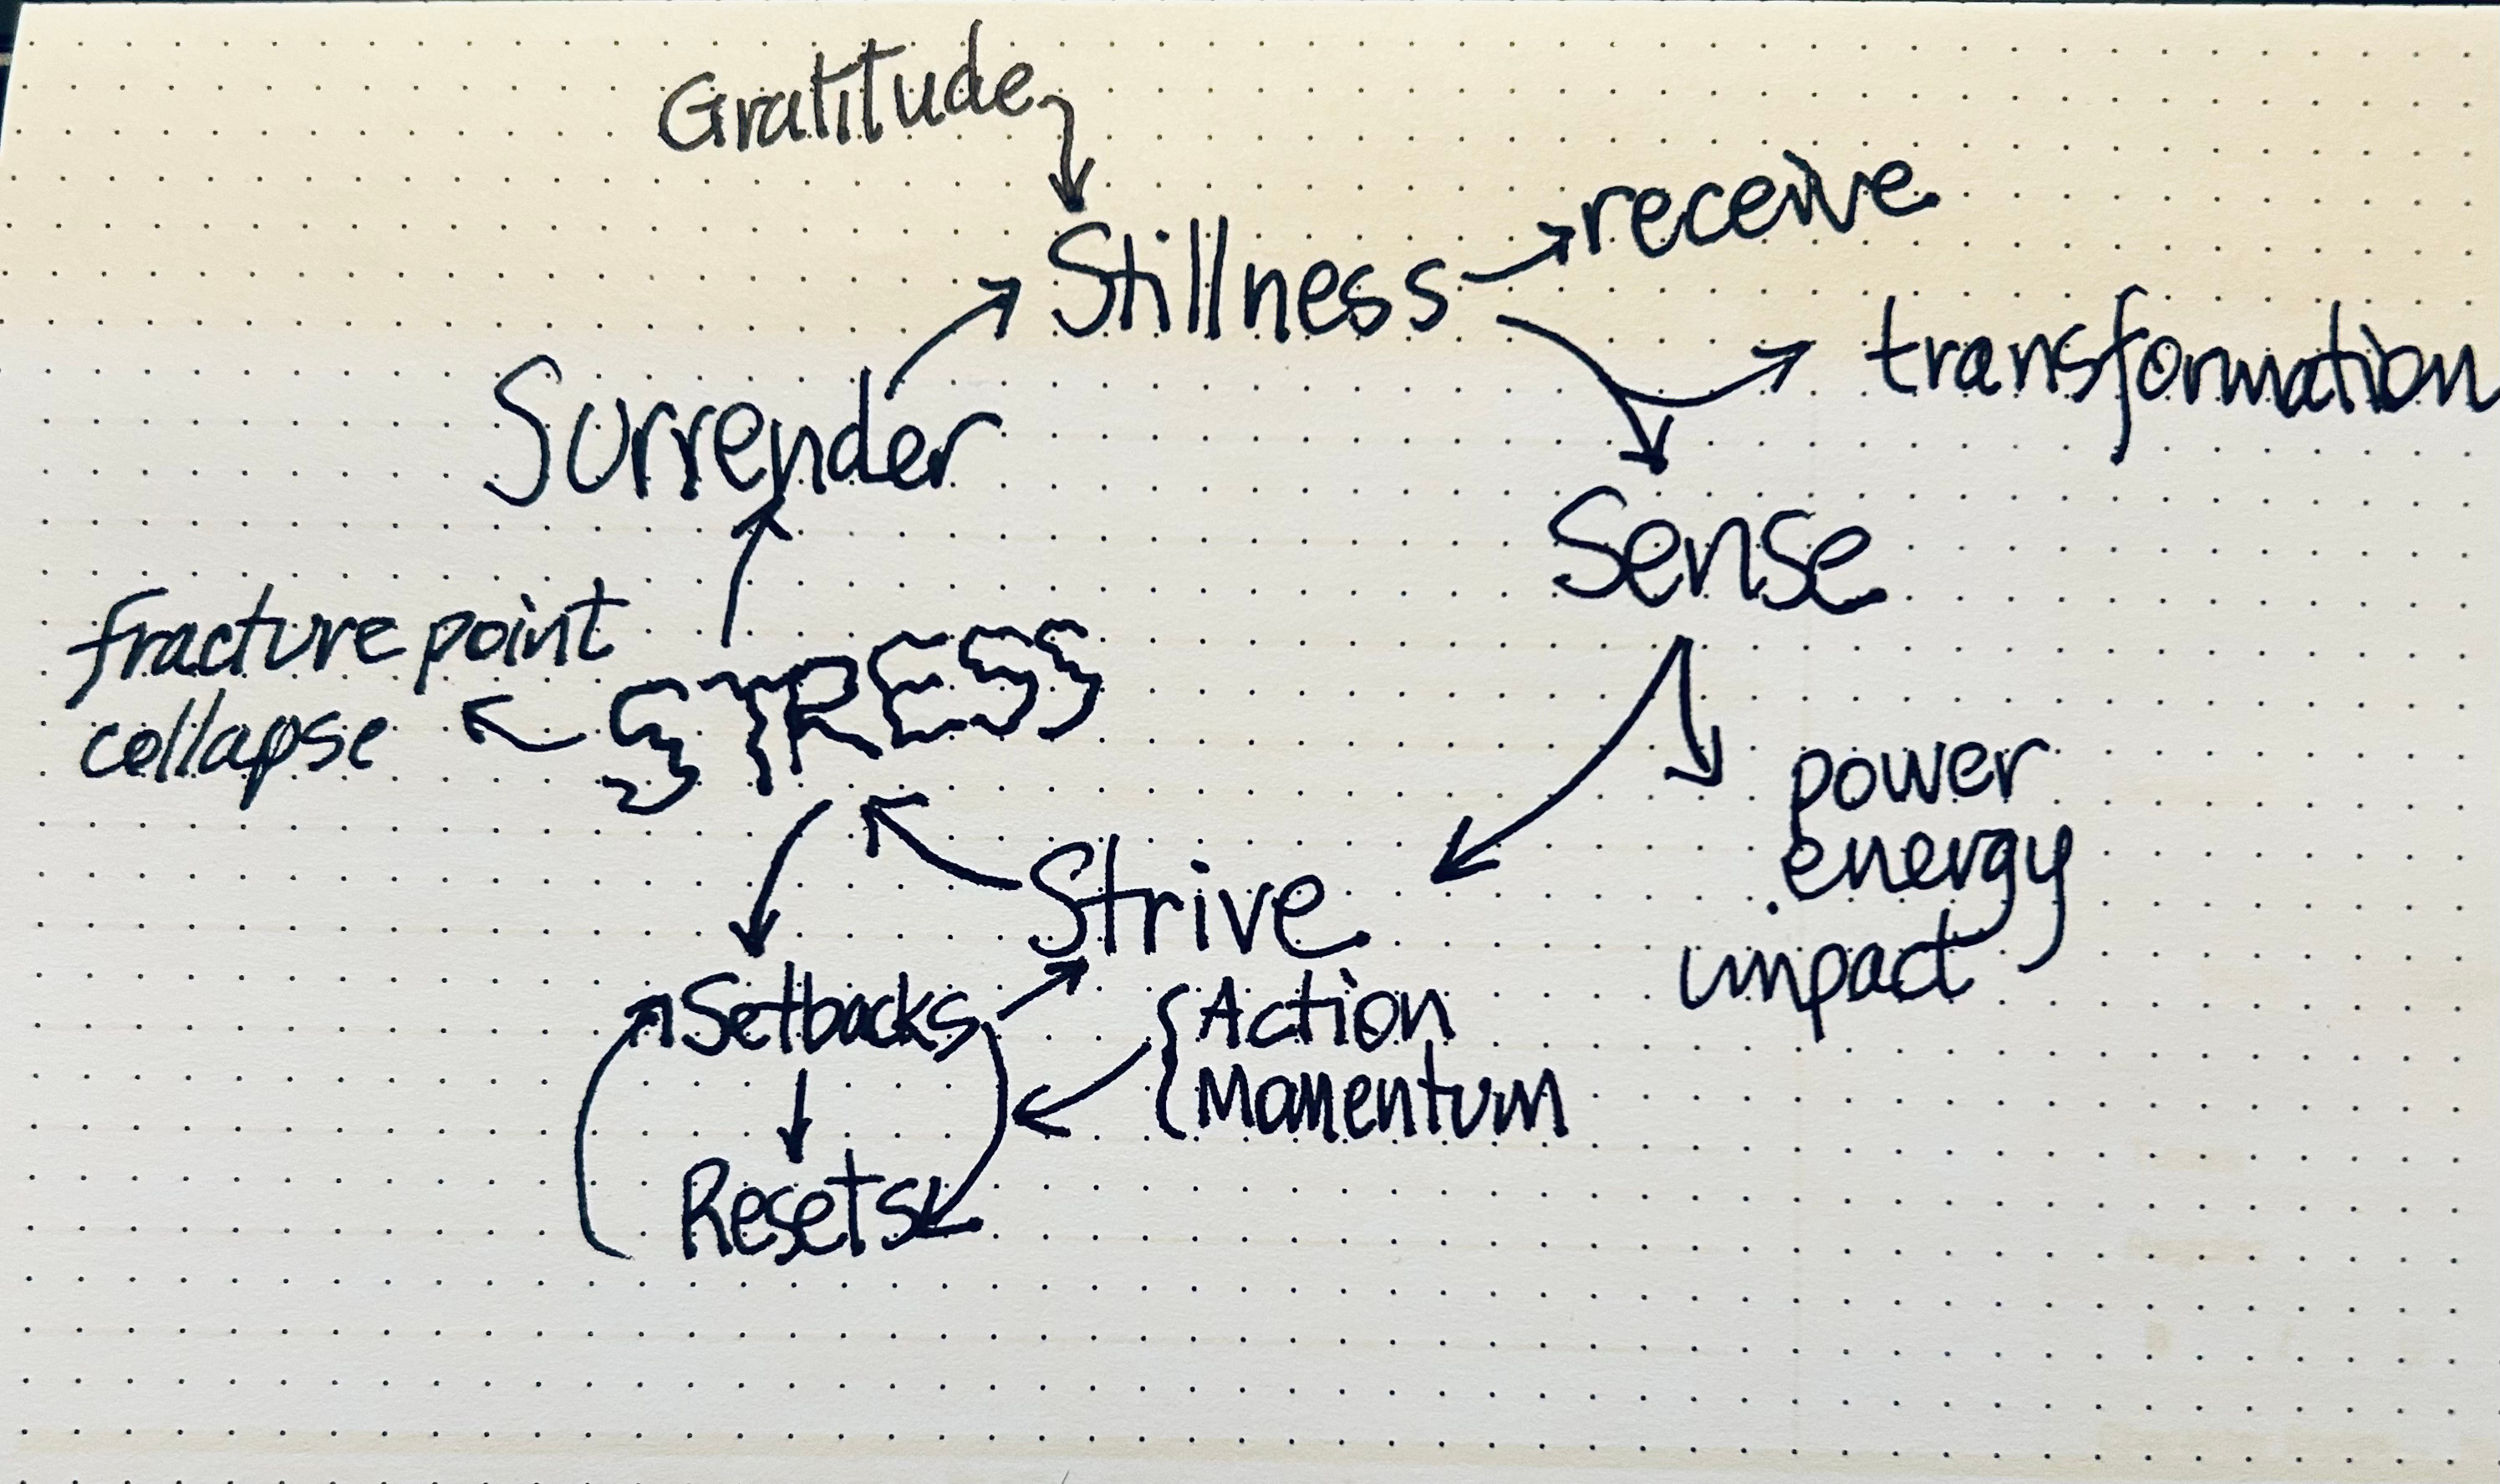 Gratitude
receive
Stillness
transformation
Surrender
Sense
fracture point
collapse
STRESS
power
energy
impact
Strive
Setbacks
{ Action
Momentum
Resets